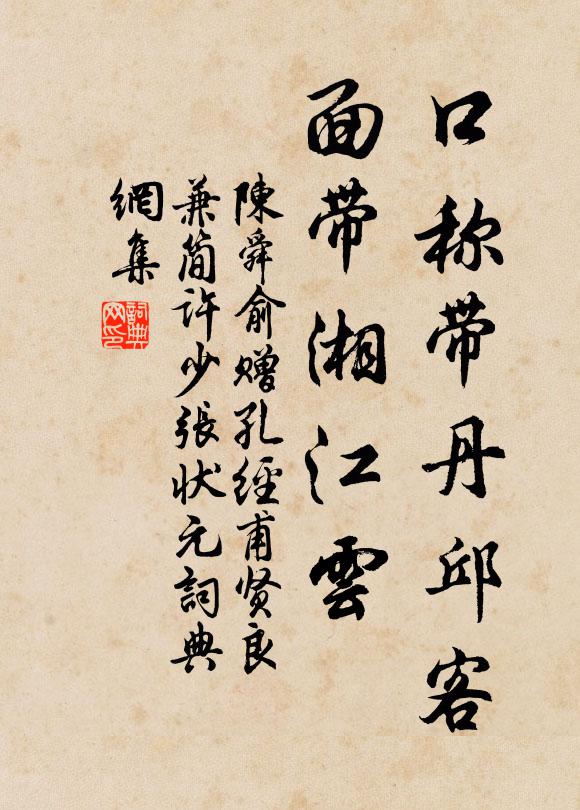 口称带丹邱客
面带湘江雲
陳舜俞赠孔經甫贤良
兼简许少張状元詞典
網集
詞典
网印